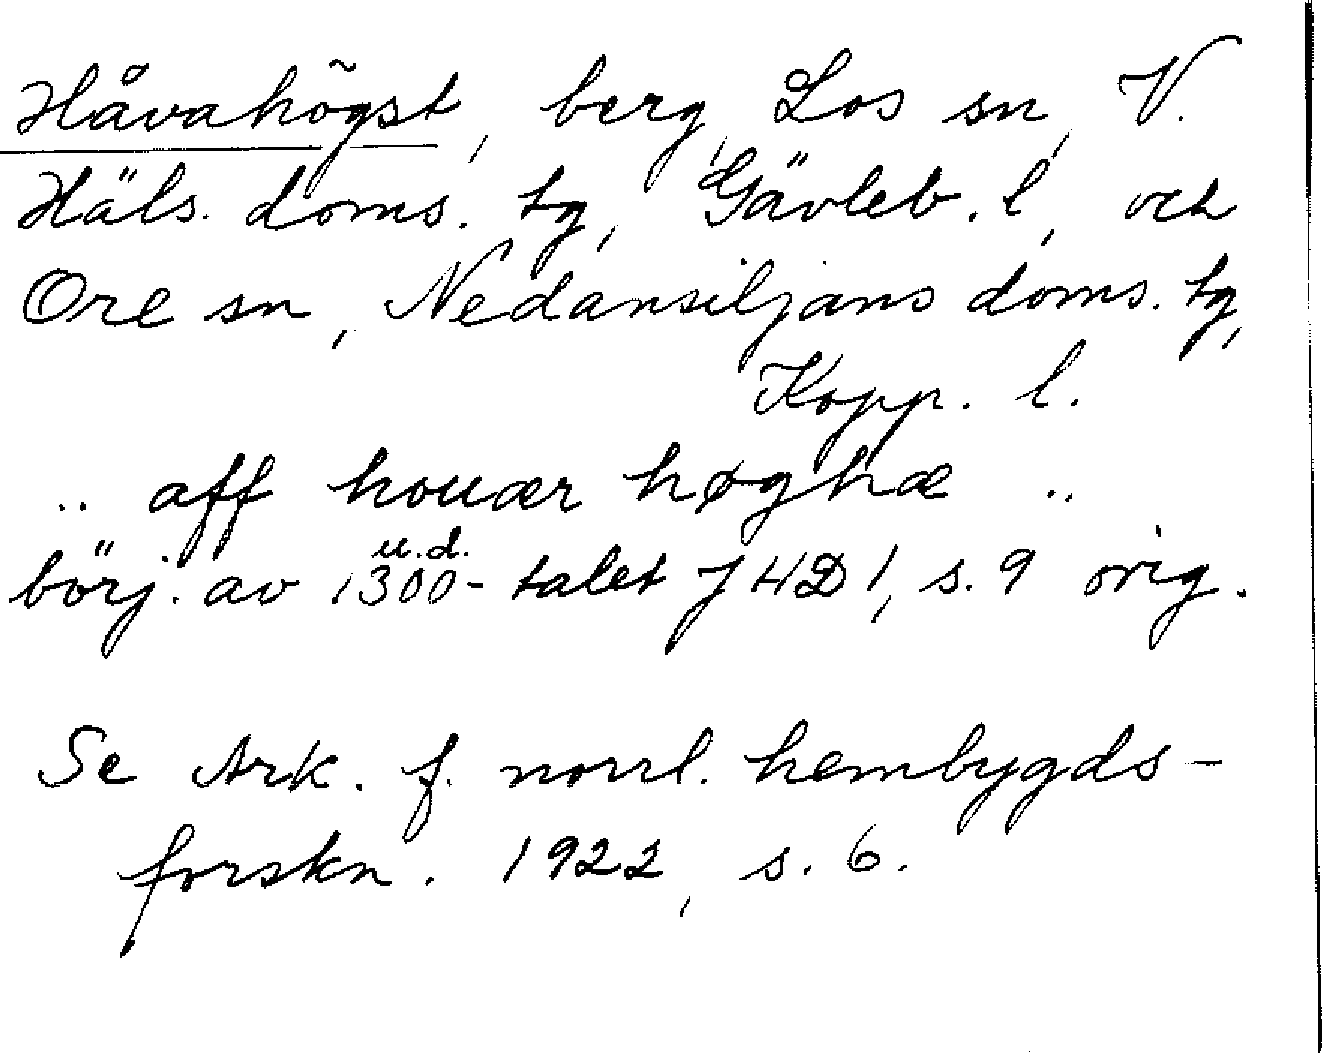 Håvahõgst, berg, Los sn, V.
Häls. doms. tg, Gävleb. l, och
Ore sn, Nedansiljans doms. tg,
Kopp. l.
.. aff houær høghæ ..
u.d.
börj. av 1300-talet J 4D1, s. 9 orig.
Se Ark. f. norrl. hembygds-
forskn. 1922, s. 6.